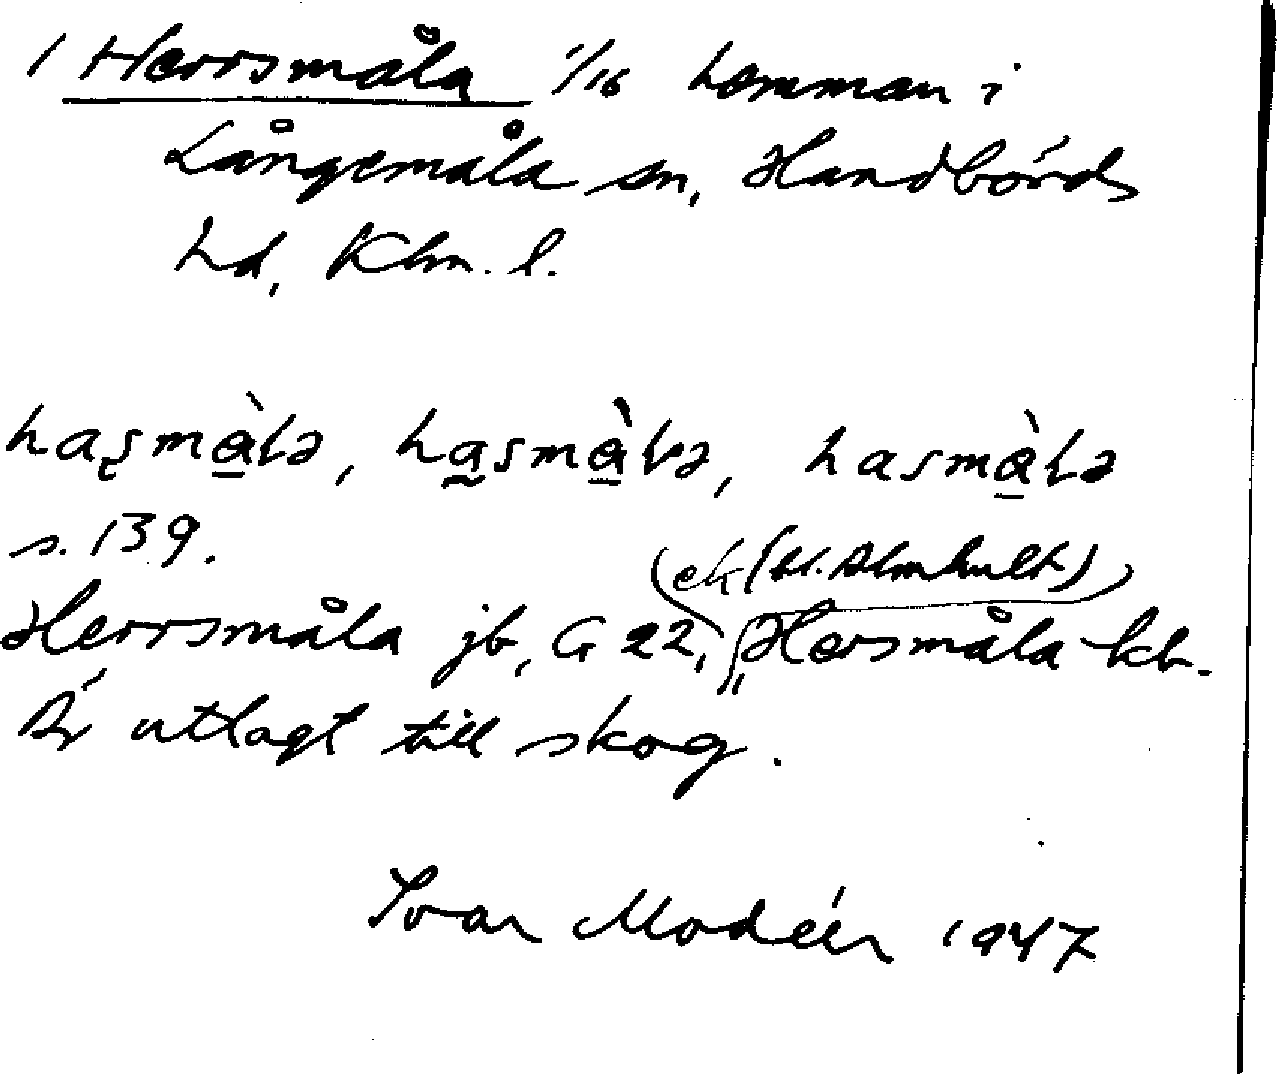 1 Herrsmåla 1/16 hemman i
Långemåla sn, Handbörds
hd, Klm. l.
haʂmàlə, ha̰smàlə, hasmàlə
s. 139.
ek (bl. Älmhult)
Herrsmåla jb, G 22, "Hersmåla kb.
Är utlagt till skog.
Ivar Modéer 1947